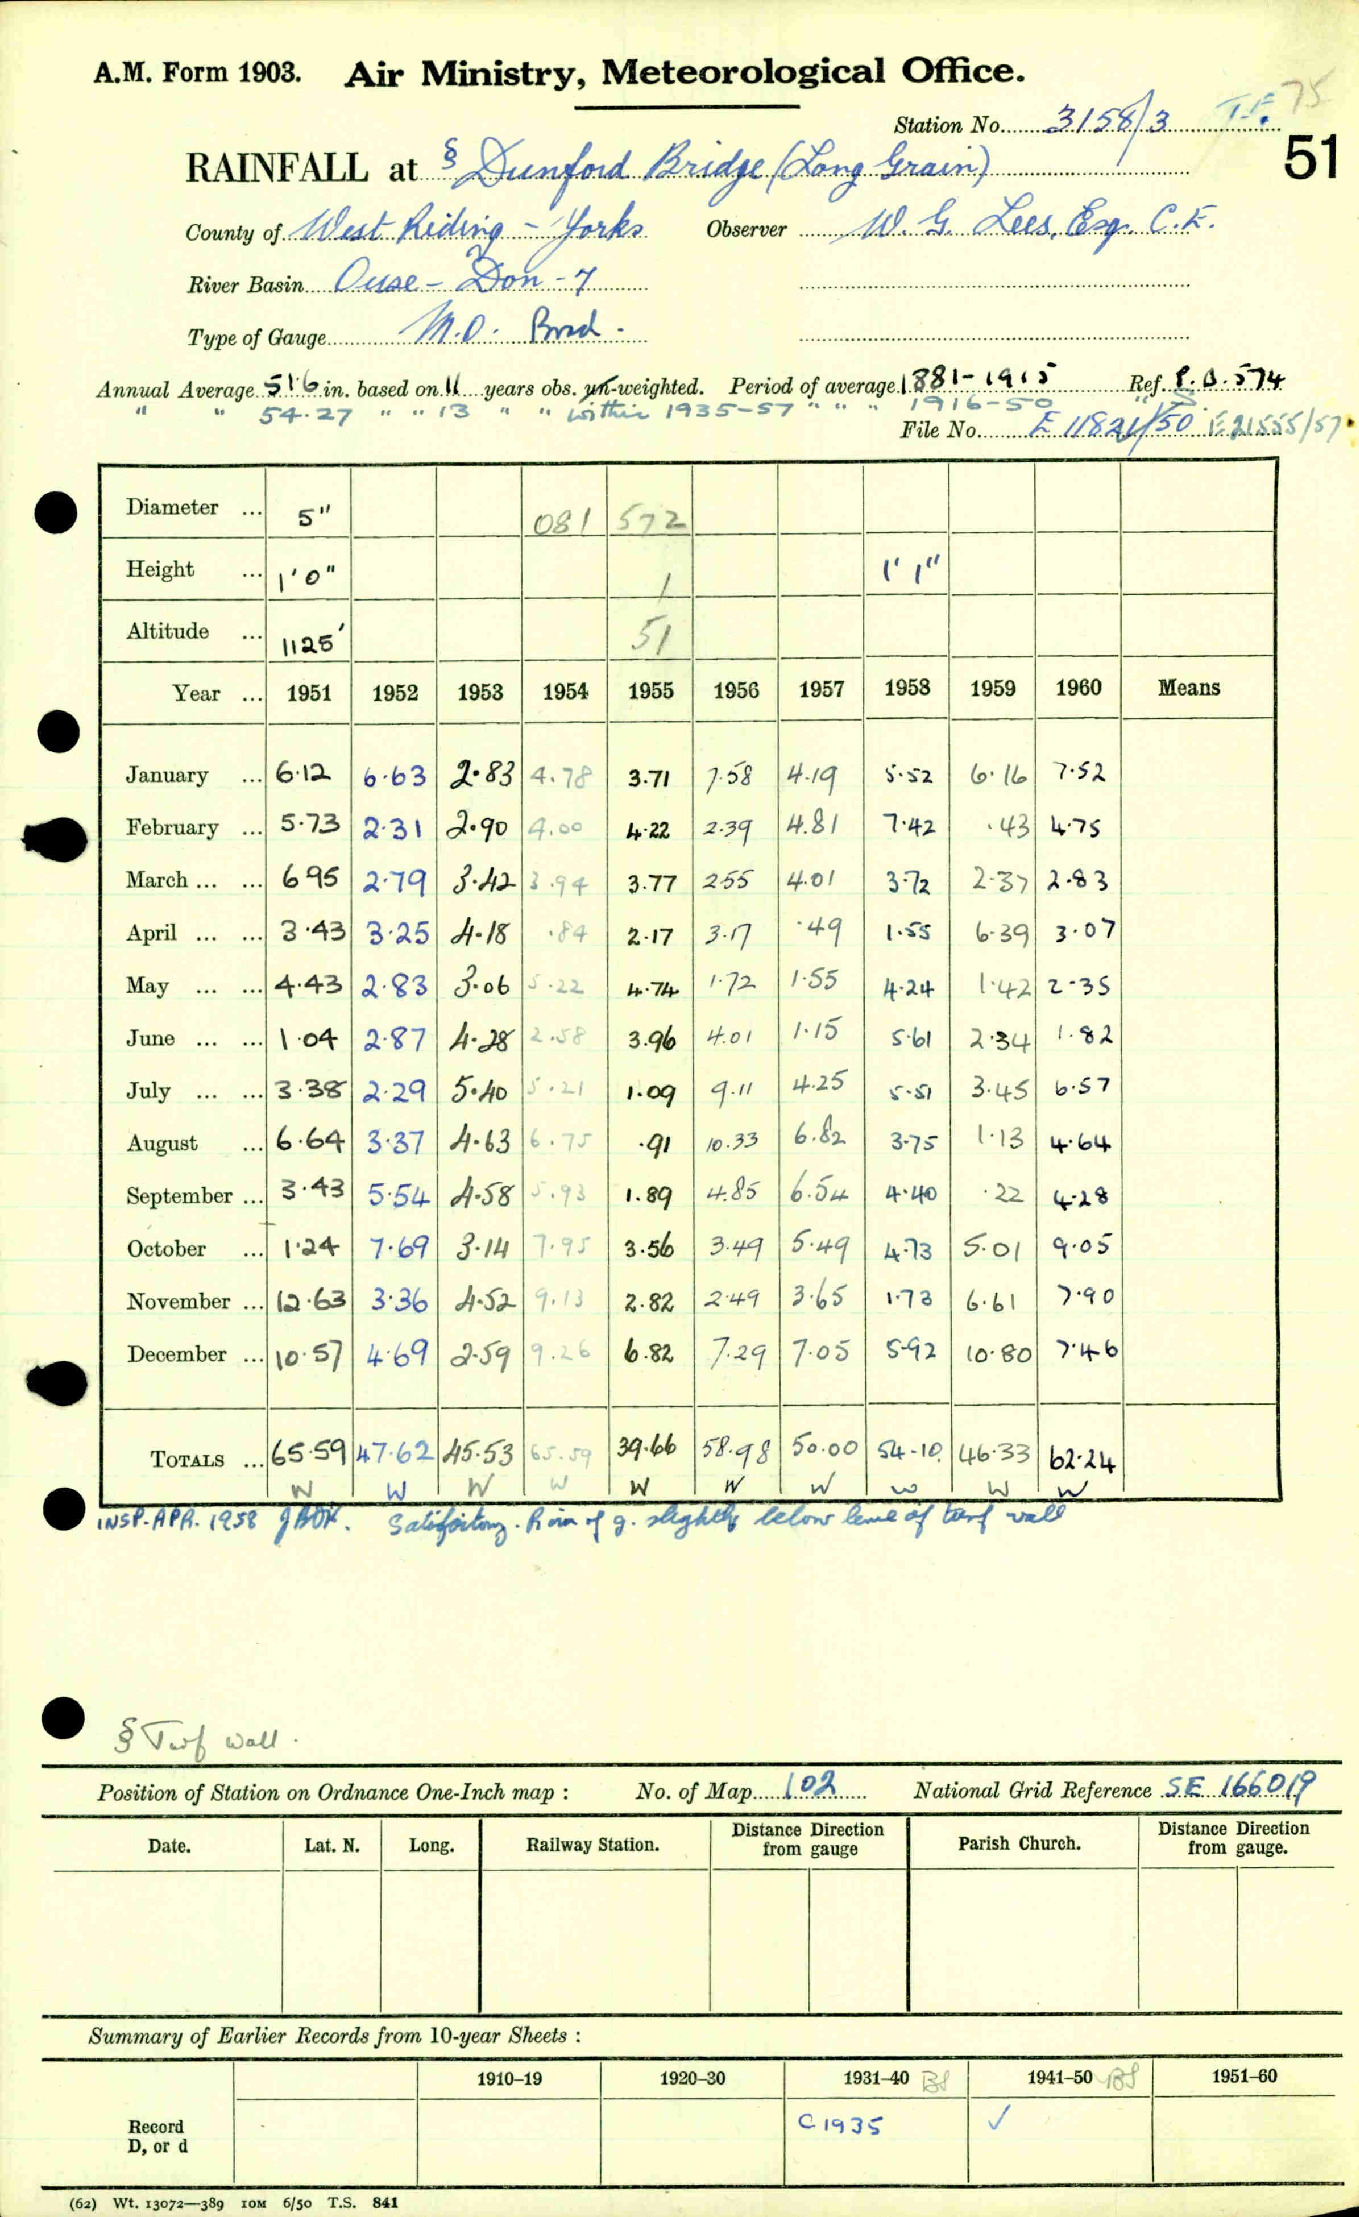 A.M. Form 1903. Air Ministry, Meteorological Office.
75
Station No. 3158/3 T.F.
51
RAINFALL at § Dunford Bridge (Long Grain)
County of West Riding - Yorks Observer W. G. Lees, Esq. C.E.
River Basin Ouse - Don - 7
Type of Gauge M.O. Brad.
Annual Average 51.6 in. based on 11 years obs. un-weighted. Period of average 1881-1915 Ref. P.B.574
" " 54.27 " " 13 " " within 1935-57 " " " 1916-50 "
File No. E 11821/50 E21555/57
Diameter ... 5" 081 572
Height ... 1' 0" 1 1' 1"
Altitude ... 1125' 51
Year ... 1951 1952 1953 1954 1955 1956 1957 1958 1959 1960 Means
January ... 6.12 6.63 2.83 4.78 3.71 7.58 4.19 5.52 6.16 7.52
February ... 5.73 2.31 2.90 4.00 4.22 2.39 4.81 7.42 .43 4.75
March ... ... 6 95 2.79 3.42 3.94 3.77 2.55 4.01 3.72 2.37 2.83
April ... ... 3.43 3.25 4.18 .84 2.17 3.17 .49 1.55 6.39 3.07
May ... ... 4.43 2.83 3.06 5.22 4.74 1.72 1.55 4.24 1.42 2.35
June ... ... 1.04 2.87 4.28 2.58 3.96 4.01 1.15 5.61 2.34 1.82
July ... ... 3.38 2.29 5.40 5.21 1.09 9.11 4.25 5.51 3.45 6.57
August ... 6.64 3.37 4.63 6.75 .91 10.33 6.82 3.75 1.13 4.64
September ... 3.43 5.54 4.58 5.93 1.89 4.85 6.54 4.40 .22 4.28
October ... 1.24 7.69 3.14 7.95 3.56 3.49 5.49 4.73 5.01 9.05
November ... 12.63 3.36 4.52 9.13 2.82 2.49 3.65 1.73 6.61 7.90
December ... 10.57 4.69 2.59 9.26 6.82 7.29 7.05 5.92 10.80 7.46
TOTALS ... 65.59 47.62 45.53 65.59 39.66 58.98 50.00 54.10 46.33 62.24
W W W W W W W W W W
INSP. APR. 1958 Satisfactory. Rim of g. slightly below level of turf wall
§ Turf wall.
Position of Station on Ordnance One-Inch map : No. of Map 102 National Grid Reference SE 166019
Date. Lat. N. Long. Railway Station. Distance Direction from gauge Parish Church. Distance Direction from gauge.
Summary of Earlier Records from 10-year Sheets :
1910–19 1920–30 1931–40 1941–50 1951–60
Record C 1935 ✓
D, or d
(62) Wt. 13072—389 10M 6/50 T.S. 841